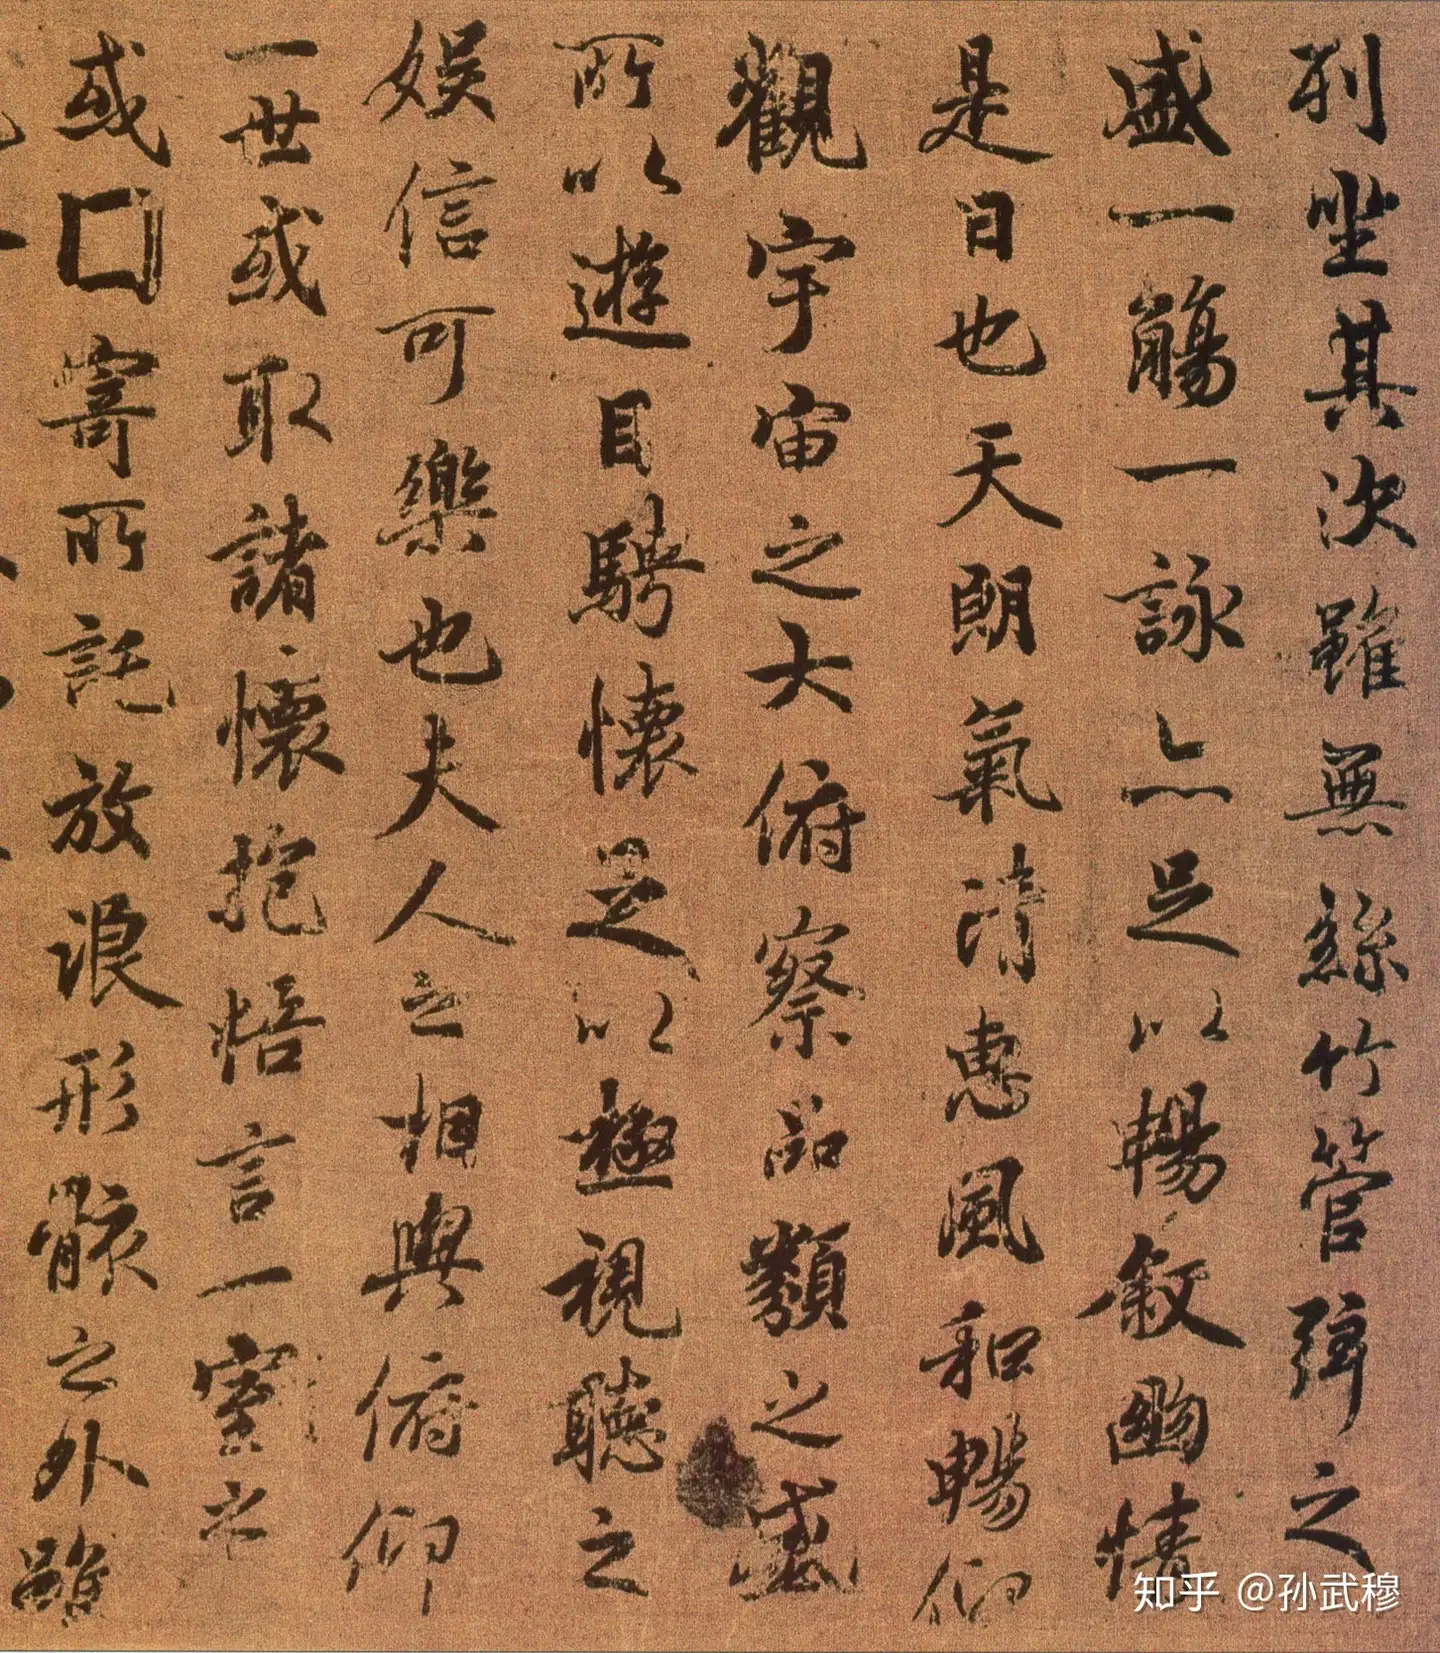 列坐其次雖無絲竹管弦之
盛一觴一詠亦足以暢敘幽情
是日也天朗氣清惠風和暢仰
觀宇宙之大俯察品類之盛
所以遊目騁懷足以極視聽之
娛信可樂也夫人之相與俯仰
一世或取諸懷抱悟言一室之
或囗寄所託放浪形骸之外雖
知乎 @孙武穆